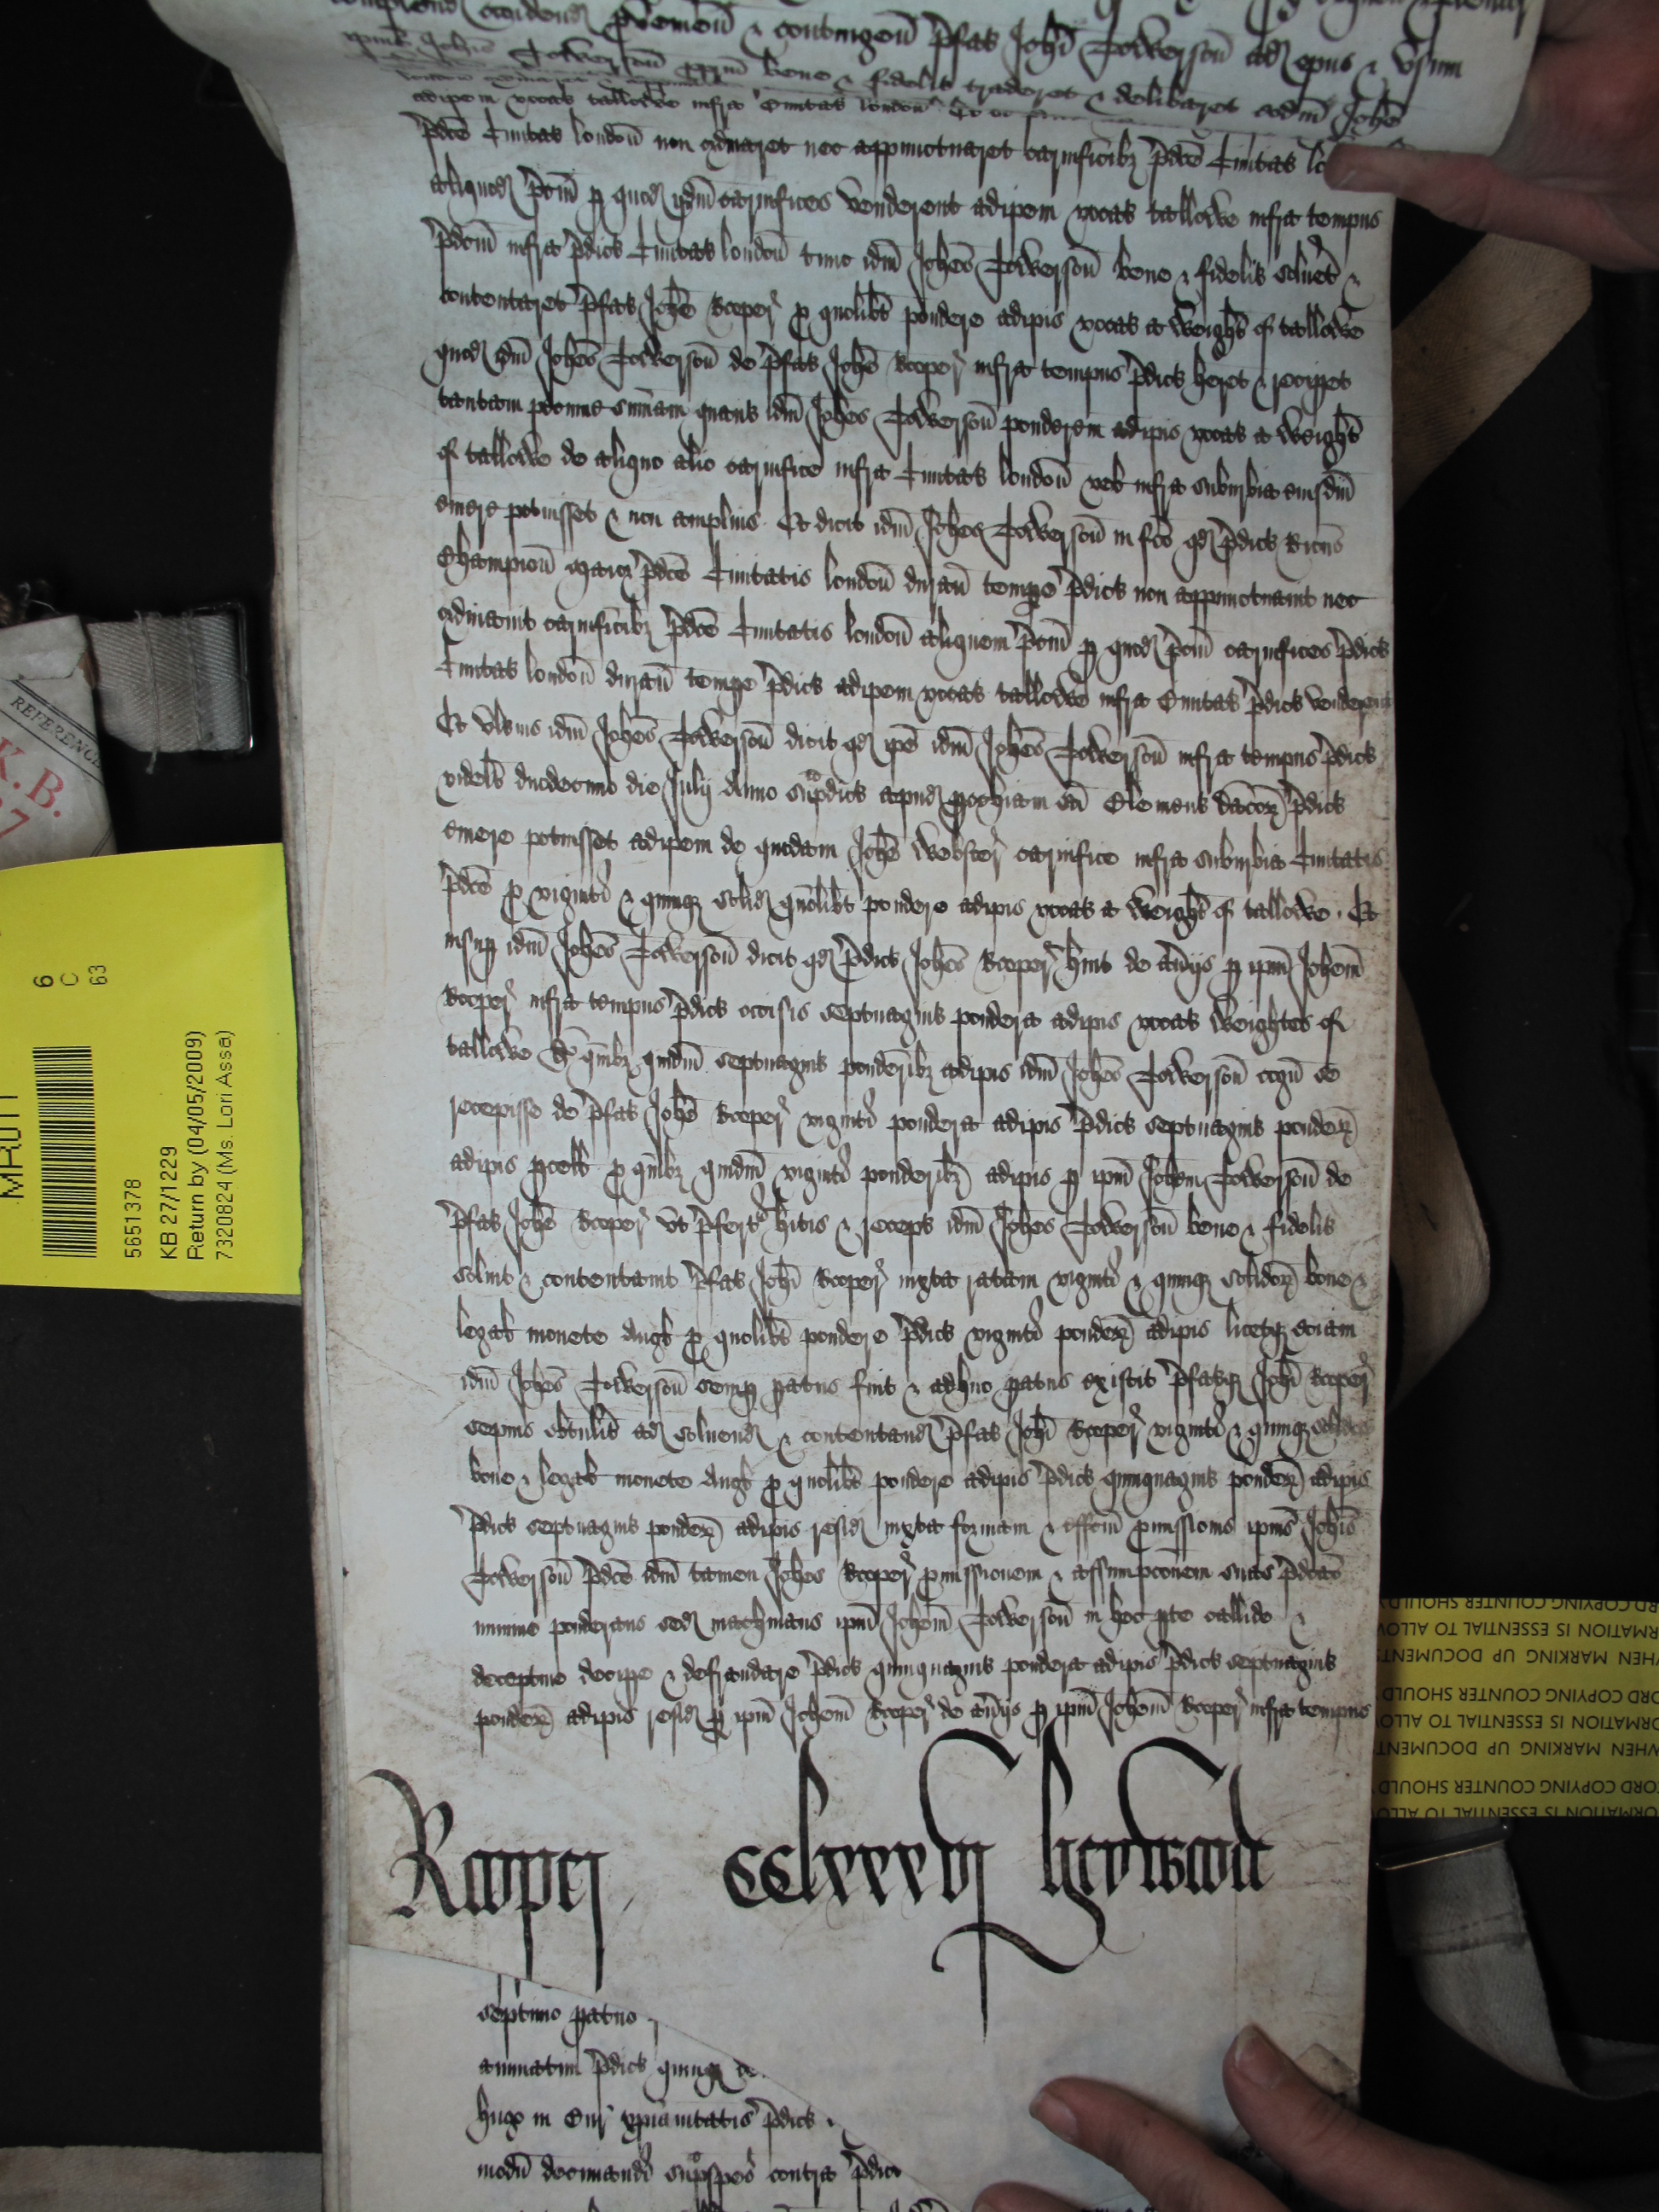 p̄veniend̄ & contingen̄ p̄fat̄ Joh̄i Towerson̄ ad opus & usum
Towerson̄ bene & fidelit̄ traderet & delib̄aret eid̄m Joh̄i
adipem vocat̄ tallowe infra Civitat̄ london̄
p̄dc̄e Civitat̄ london̄ non ordinaret nec appunctuaret carnificib₃ p̄dc̄e Civitat̄
aliquod p̄ciū p quod ijd̄m carnifices venderent adipem vocat̄ tallowe infra tempus
p̄dc̄m infra p̄dict̄ Civitat̄ london̄ tunc id̄m Joh̄es Towerson̄ bene & fidelit̄ solv̄et &
contentaret p̄fat̄ Joh̄i Rooper p quol̄ibt̄ pondere adipis vocat̄ a weight̄ of tallowe
quod id̄m Joh̄es Towerson̄ de p̄fat̄ Joh̄e Rooper infra tempus p̄dict̄ h̄eret & recip̄et
tantam pecunie sum̄am quant̄ id̄m Joh̄es Towerson̄ ponderem adipis vocat̄ a weight̄
of tallowe de aliquo alio carnifice infra Civitat̄ london̄ vel infra suburbia eiusd̄m
emere potuisset & non amplius Et dicit id̄m Joh̄es Towerson̄ in f̄co qd̄ p̄dict̄ Ric̄us
Champion̄ maior p̄dc̄e Civitatis london̄ duran̄ temp̄e p̄dict̄ non appunctuavit nec
ordinavit carnificib₃ p̄dc̄e Civitatis london̄ aliquem p̄ciū p quod p̄ciū carnifices p̄dict̄
Civitat̄ london̄ duran̄ temp̄e p̄dict̄ adipem vocat̄ tallowe infra Civitat̄ p̄dict̄ venderent
Et ult̄ius id̄m Joh̄es Towerson̄ dicit qd̄ ip̄e id̄m Joh̄es Towerson̄ infra tempus p̄dict̄
videl̄t duodecimo die Julij Anno sup̄dict̄ apud parochiam sc̄i Clement̄ Dacor̄ p̄dict̄
emere potuisset adipem de quodam Joh̄e Webster carnifice infra suburbia Civitatis
p̄dc̄e p viginti & quinq₃ solid̄ quol̄ibt̄ pondere adipis vocat̄ a weight̄ of tallowe . Et
insup id̄m Joh̄es Towerson̄ dicit qd̄ p̄dict̄ Joh̄es Rooper h̄uit de āiijs p ip̄m Joh̄em
Rooper infra tempus p̄dict̄ occisis septuagint̄ pondera adipis vocat̄ weightes of
tallowe de quib₃ quid̄m septuagint̄ ponderib₃ adipis id̄m Joh̄es Towerson̄ cogn̄ se
recepisse de p̄fat̄ Joh̄e Rooper viginti pondera adipis p̄dict̄ septuagint̄ ponder̄
adipis parcell̄ p quib₃ quid̄m viginti ponderib₃ adipis p ip̄m Joh̄em Towerson̄ de
p̄fat̄ Joh̄e Rooper ut p̄fert̄ h̄itis & recept̄ id̄m Joh̄es Towerson̄ bene & fidelit̄
solvit & contentavit p̄fat̄ Joh̄i Rooper iuxta ratam viginti & quinq₃ solidor̄ bone &
legal̄ monete Angl̄ p quol̄ibt̄ pondere p̄dict̄ viginti ponder̄ adipis licetq₃ eciam
id̄m Joh̄es Towerson̄ semp paratus fuit & adhuc paratus existit p̄fatoq₃ Joh̄i Rooper
sepius obtulit ad solvend̄ & contentand̄ p̄fat̄ Joh̄i Rooper viginti & quinq₃ solidos
bone & legal̄ monete Angl̄ p quol̄ibt̄ pondere adipis p̄dict̄ quinquagint̄ ponder̄ adipis
p̄dict̄ septuagint̄ ponder̄ adipis resid̄ iuxta formam & effc̄um p̄missionis ip̄ius Joh̄is
Towerson̄ p̄dc̄e id̄m tamen Joh̄es Rooper p̄missionem & assumpc̄onem suas p̄dict̄as
minime ponderans sed machinans ip̄m Joh̄em Towerson̄ in hac p̄te callide &
deceptive decip̄e & defraudare p̄dict̄ quinquagint̄ pondera adipis p̄dict̄ septuagint̄
ponder̄ adipis resid̄ p ip̄m Joh̄em Rooper de āiijs p ip̄m Joh̄em Rooper infra tempus
Rooper cclxxxvij
septimo paratus
annuatim p̄dict̄ quinq₃
hugo in Cur̄ xp̄ianitatis p̄dict̄
modū decimandi sup̄spec̄ contra p̄dict̄
REFERENCE
K.B.
6
C
63
5651378
KB 27/1229
Return by (04/05/2009)
7320824 (Ms. Lori Assa)
ORD COPYING COUNTER SHOULD
ORMATION IS ESSENTIAL TO ALLO
WHEN MARKING UP DOCUMENT
ORD COPYING COUNTER SHOULD
ORMATION IS ESSENTIAL TO ALLO
WHEN MARKING UP DOCUMENT
ORD COPYING COUNTER SHOULD
ORMATION IS ESSENTIAL TO ALLO